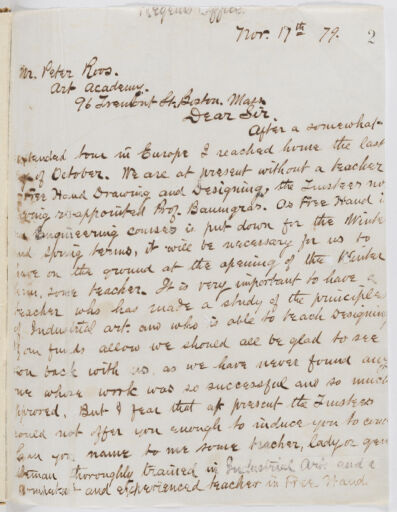 Regent's Office.
Nov. 17th 79. 2
Mr. Peter Roos.
Art Academy.
96 Tremont St. Boston. Mass
Dear Sir.
After a somewhat
extended tour in Europe I reached home the last
of October. We are at present without a teacher
Free Hand Drawing and Designing, the Trustees not
having re-appointed Prof. Baumgras. As Free Hand in
Engineering courses is put down for the Winter
and Spring terms, it will be necessary for us to
have on the ground at the opening of the Winter
term, some teacher. It is very important to have a
teacher who has made a study of the principles
of Industrial art and who is able to teach Designing
If our funds allow we should all be glad to see
you back with us, as we have never found any
one whose work was so successful and so much
approved. But I fear that at present the Trustees
could not offer you enough to induce you to come
Can you name to me some teacher, lady or gen
tleman thoroughly trained in Industrial Art and a
and experienced teacher in Free Hand